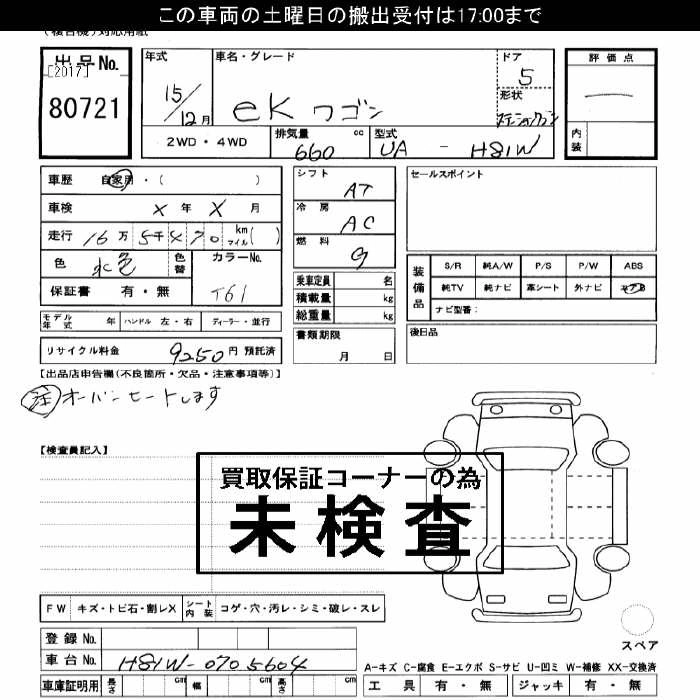 この車両の土曜日の搬出受付は17:00まで
出品No.
[2017]
80721
年式
15/12月
車名・グレード
eKワゴン
ドア
5
形状
ステーションワゴン
評価点
内装
2WD・4WD
排気量
660
cc
型式
UA - H81W
車歴 自家用・( )
車検 X年 X月
走行 16万5千470 km マイル( )
色 水色
色替
カラーNo.
T61
保証書 有・無
シフト
AT
冷房
AC
燃料
G
乗車定員 名
積載量 kg
総重量 kg
書類期限
月 日
セールスポイント
装備品
S/R 純A/W P/S P/W ABS
純TV 純ナビ 革シート 外ナビ エアB
ナビ型番:
後日品
モデル年式 年 ハンドル 左・右 ディーラー・並行
リサイクル料金 9250円 預託済
【出品店申告欄(不良箇所・欠品・注意事項等)】
注 オーバーヒートします
【検査員記入】
買取保証コーナーの為
未検査
FW キズ・トビ石・割レX シート内装 コゲ・穴・汚レ・シミ・破レ・スレ
登録No.
車台No. H81W-0705604
車庫証明用 長さ cm 幅 cm 高さ cm
スペア
A-キズ C-腐食 E-エクボ S-サビ U-凹ミ W-補修 XX-交換済
工具 有・無 ジャッキ 有・無